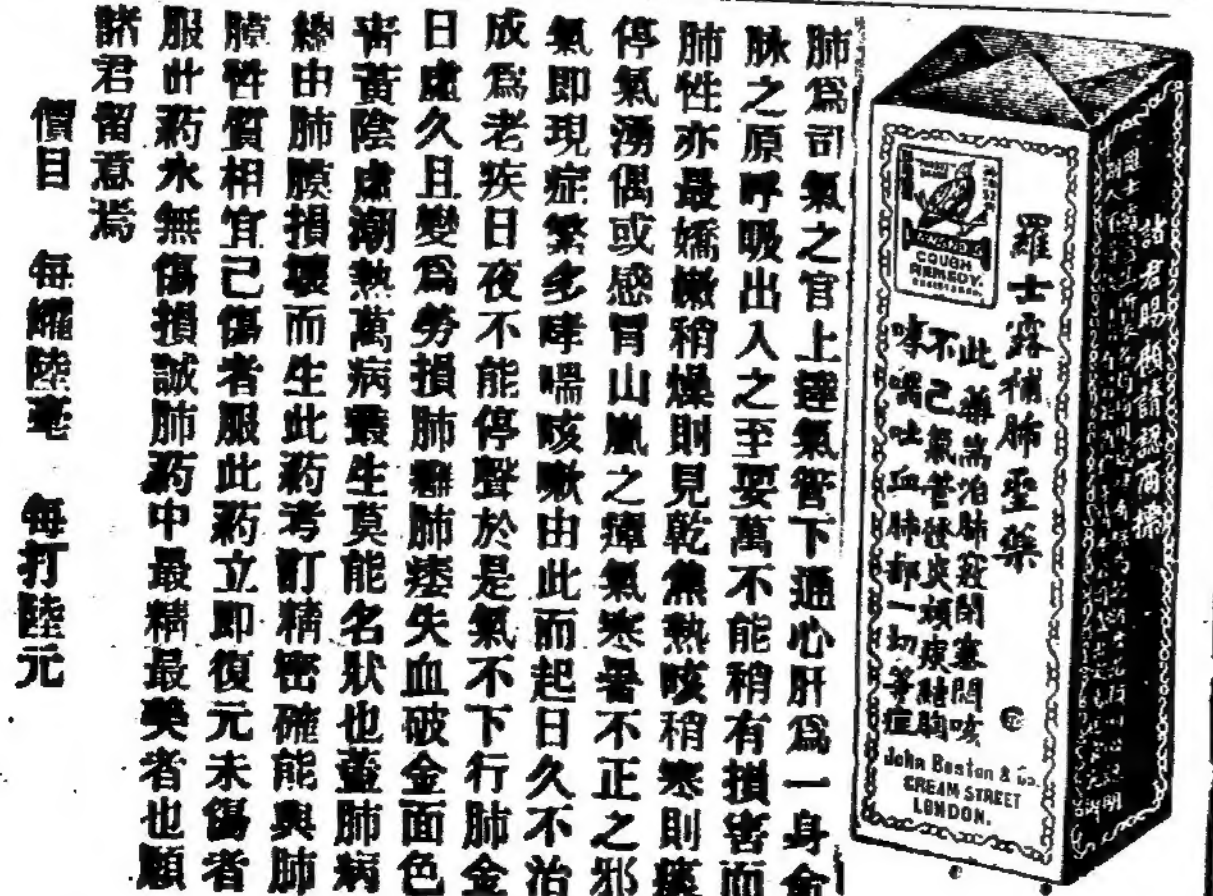 諸君賜顧請認商標
羅士露補肺聖藥
COUGH
REMEDY.
此藥耑治肺竅閉塞悶咳
不己氣管發炎頑痰結胸
哮喘吐血肺部一切等症
John Boston & Co.
CREAM STREET
LONDON.
肺爲司氣之官上達氣管下通心肝爲一身命
脉之原呼吸出入之至要萬不能稍有損害而
肺性亦最嬌嫩稍燥則見乾焦熱咳稍寒則痰
停氣湧偶或感冐山嵐之瘴氣寒暑不正之邪
氣即現症繁多哮喘咳嗽由此而起日久不治
成爲老疾日夜不能停聲於是氣不下行肺金
日虛久且變爲勞損肺癆肺痿失血破金面色
靑黃陰虛潮熱萬病叢生莫能名狀也蓋肺病
總由肺膜損壞而生此葯考訂精密確能與肺
膜性質相宜己傷者服此葯立即復元未傷者
服此葯水無傷損誠肺葯中最精最美者也願
諸君留意焉
價目 每罇陸毫 每打陸元